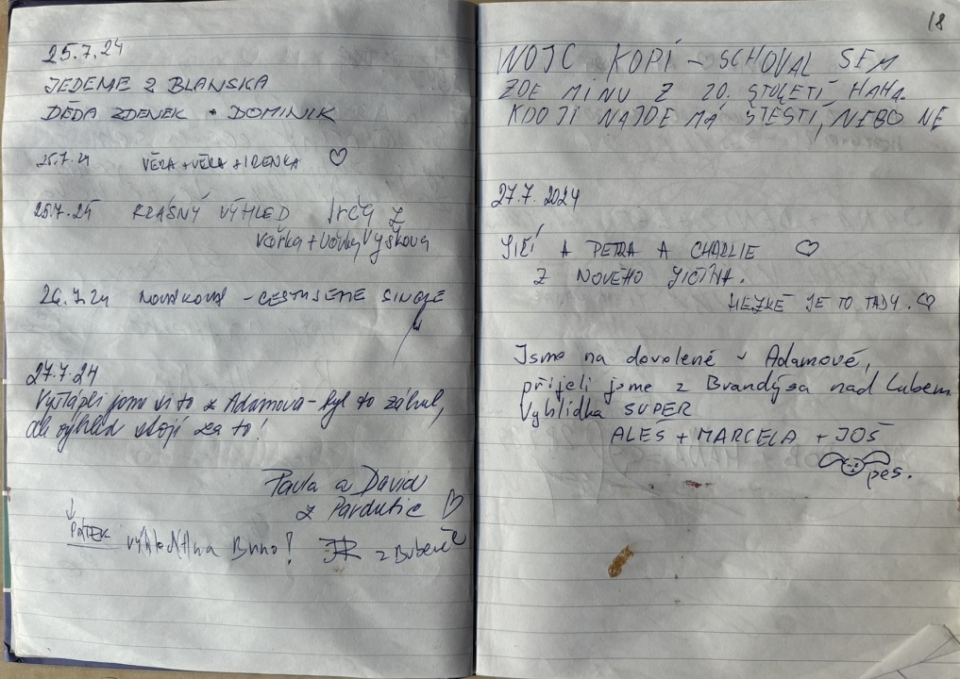 25.7.24
JEDEME Z BLANSKA
DĚDA ZDENEK + DOMINIK
25.7.24 VĚRA + VĚRA + IRENKA ♡
25.7.24 KRÁSNÝ VÝHLED Irča z
Vařka + Vyškova
26.7.24 NOVÁKOVÁ - CESTUJEME
27.7.24
Vyšlápli jsme si to z Adamova - byl to záhul,
ale výhled stojí za to!
Pavla a David
z Pardubic ♡
↓
výhled na Brno! z Bubenče
18
WOJC KOPÍ - SCHOVAL SEM
ZDE MINU Z 20. STOLETÍ HAHA.
KDO JI NAJDE MÁ ŠTĚSTÍ, NEBO NE
27.7. 2024
JIŘÍ A PETRA A CHARLIE ♡
Z NOVÉHO JIČÍNA.
HEZKÉ JE TO TADY. ♡
Jsme na dovolené v Adamově,
přijeli jsme z Brandýsa nad Labem
Vyhlídka SUPER
ALEŠ + MARCELA + JOŠ
pes.